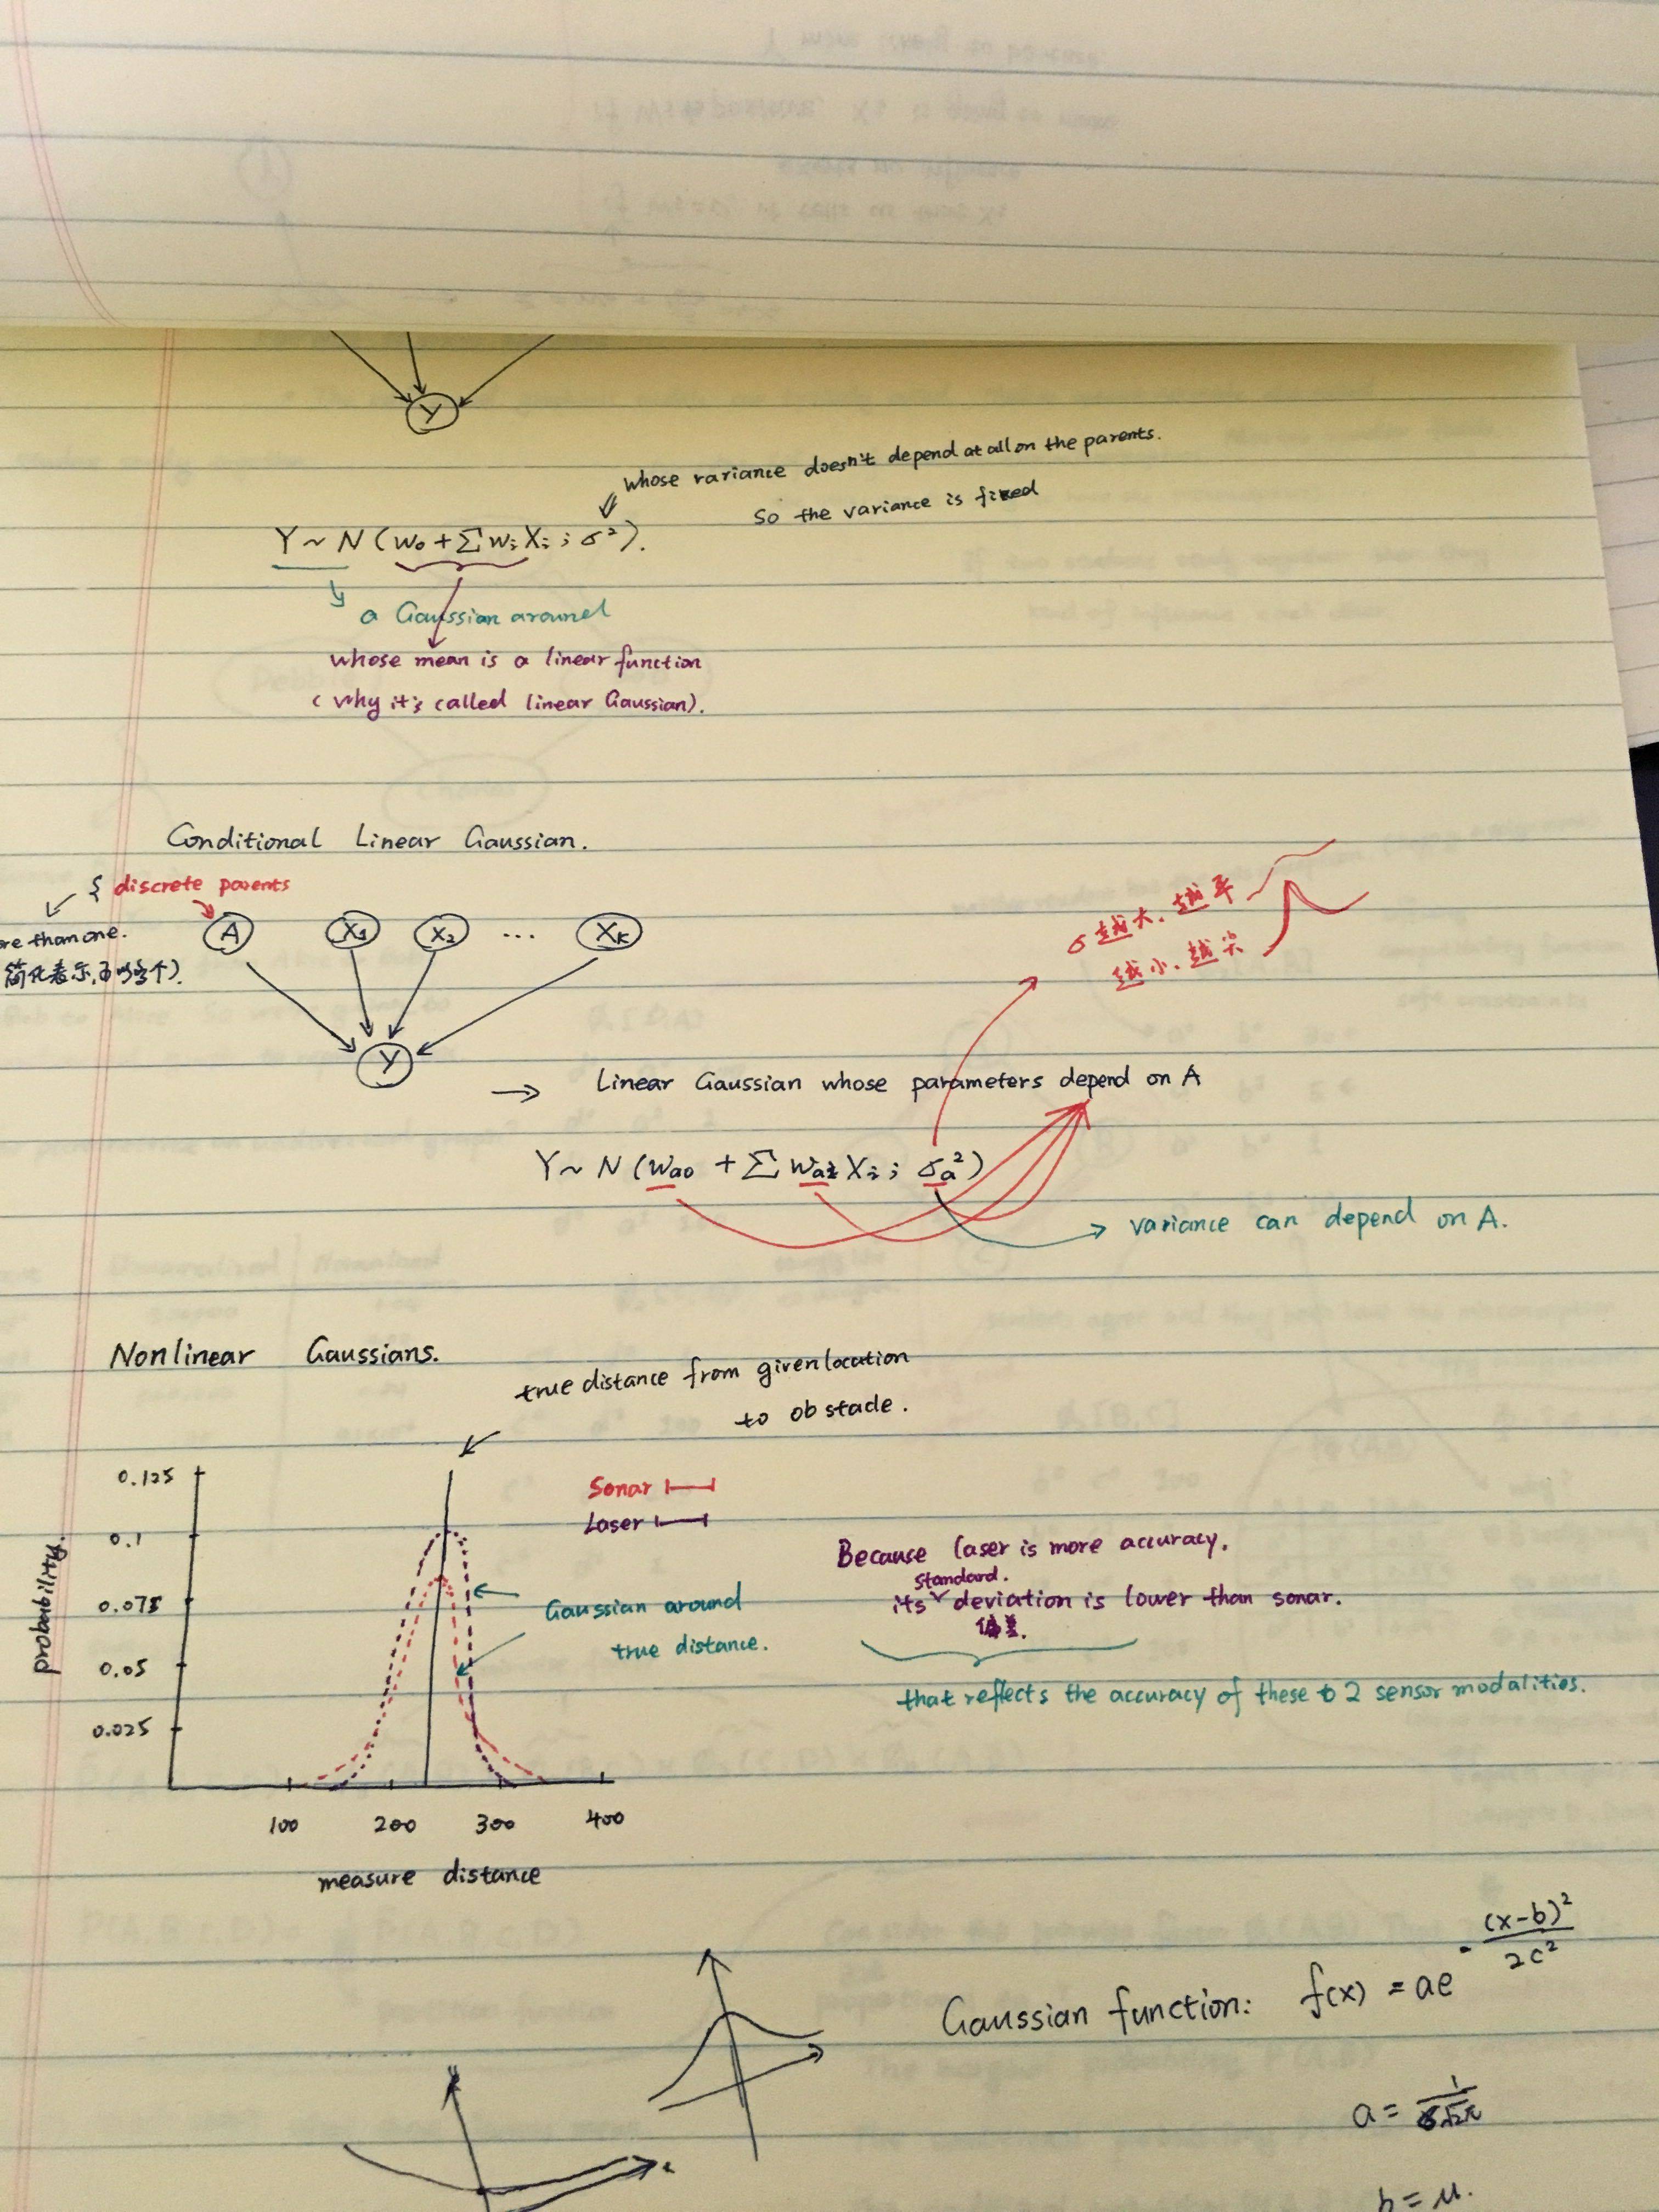 Y
whose variance doesn't depend at all on the parents.
So the variance is fixed
Y ~ N (w₀ + Σ wᵢ Xᵢ ; σ²).
a Gaussian around
whose mean is a linear function
( why it's called linear Gaussian).
Conditional Linear Gaussian.
discrete parents
re than one.
A X₁ X₂ ... Xₖ
σ 越大、越平
越小、越尖
Y
→ Linear Gaussian whose parameters depend on A
Y ~ N (wₐ₀ + Σ wₐᵢ Xᵢ ; σₐ²)
variance can depend on A.
Nonlinear Gaussians.
true distance from given location
to obstacle.
0.125
0.1
0.075
0.05
0.025
probability.
Sonar
Laser
Gaussian around
true distance.
Because laser is more accuracy.
standard.
its deviation is lower than sonar.
偏差.
that reflects the accuracy of these 2 sensor modalities.
100 200 300 400
measure distance
Gaussian function: f(x) = ae^-(x-b)²/2c²
a = 1/σ√2π
b = μ.